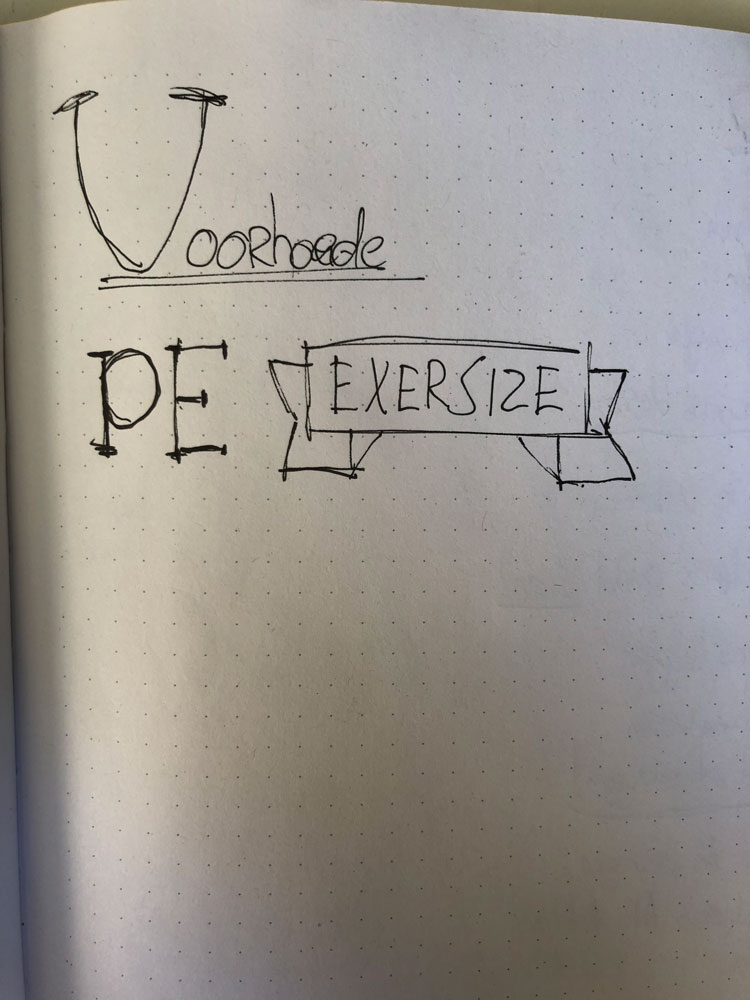 Voorhoede
PE EXERSIZE